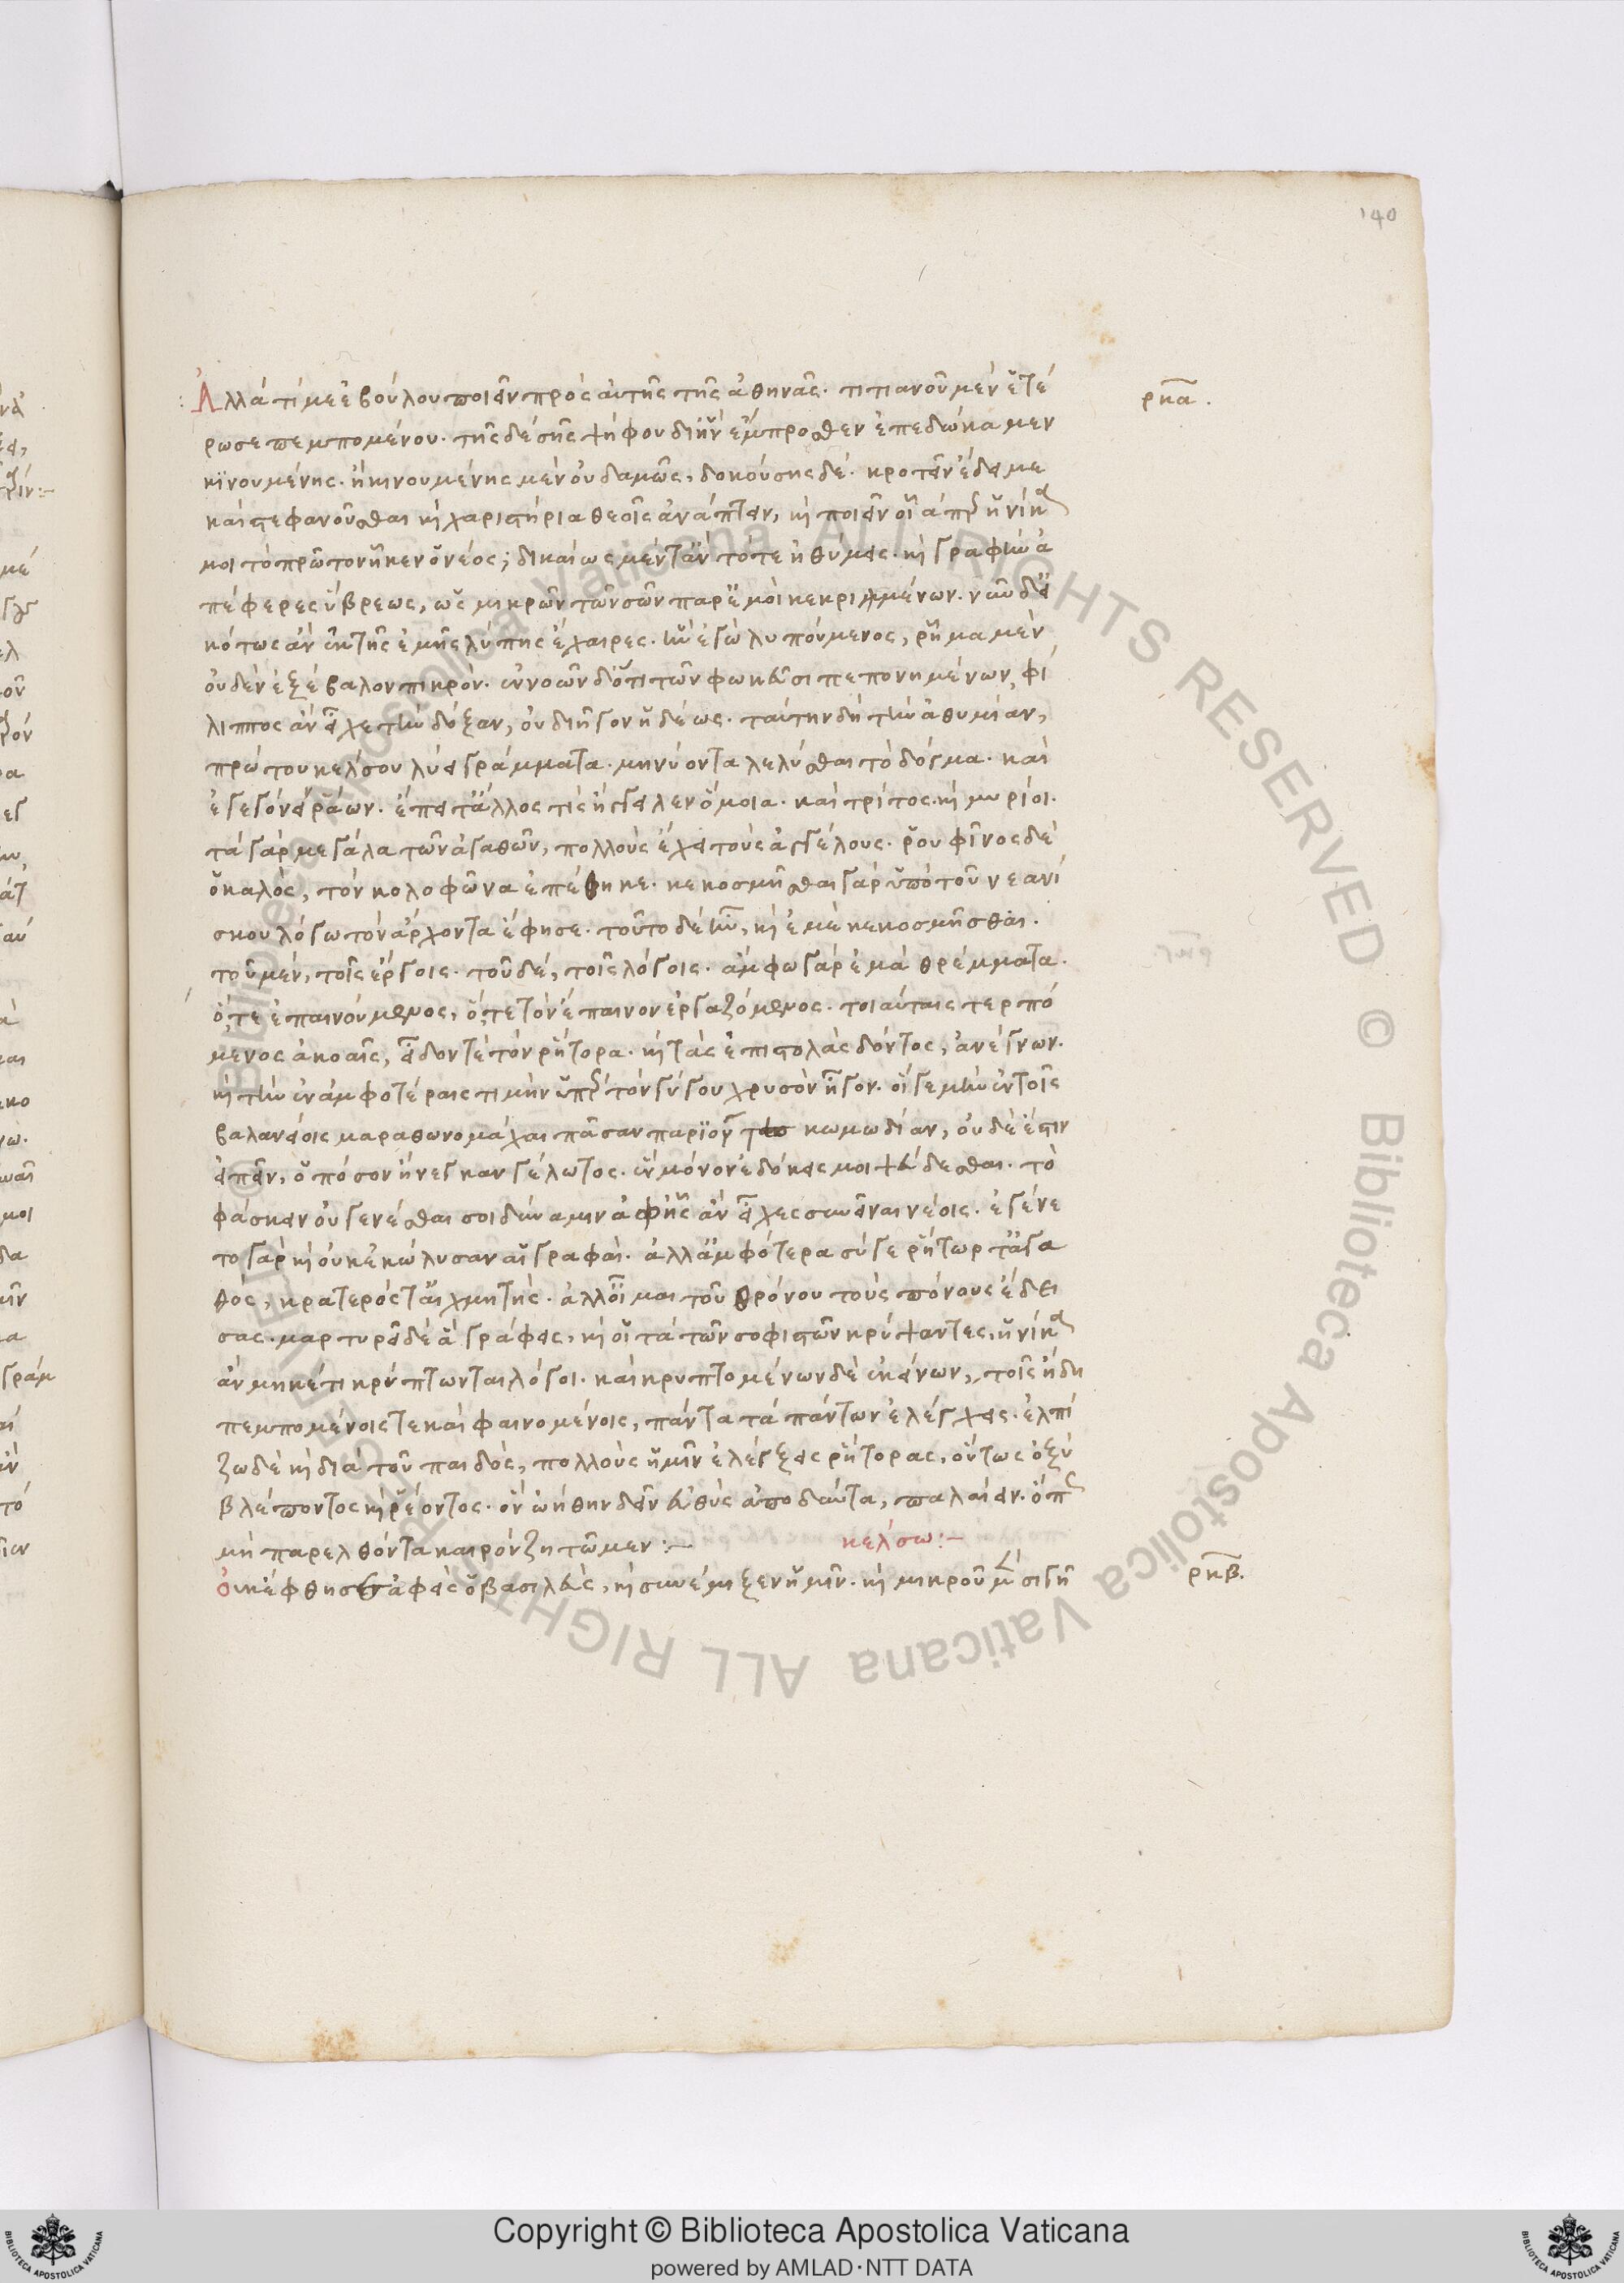 140
Ἀλλὰ τί με ἐβούλου ποιεῖν πρὸς αὐτῆς τῆς ἀθηνᾶς. τιτιανοῦ μὲν ἑτέ
ρωσε πεμπομένου. τῆς δὲ σῆς ψήφου δι' ἣν ἔμπροσθεν ἐπεδώκαμεν
κινουμένης. ἢ κινουμένης μὲν οὐδαμῶς, δοκούσης δέ. κροτεῖν ἔδει με
καὶ στεφανοῦσθαι καὶ χαριστήρια θεοῖς ἀνάπτειν, καὶ ποιεῖν οἷάπερ ἡνίκα
μοι τὸ πρῶτον ἧκεν ὁ νέος; δικαίως μέντἂν τότε ἠθύμεις. καὶ γραφὴν ἀ
πέφερες ὕβρεως, ὡς μικρῶν τῶν σῶν παρ' ἐμοὶ κεκριμμένων. νῦν δ' εἰ
κότως ἂν ἐκ τῆς ἐμῆς λύπης ἔχαιρες. ἣν ἐγὼ λυπούμενος, ῥῆμα μὲν
οὐδὲν ἐξέβαλον πικρόν. ἐννοῶν δ' ὅτι τῶν φωκεῦσι πεπονημένων, φί
λιππος ἂν εἶχε τὴν δόξαν, οὐ διῆγον ἡδέως. ταύτην δὴ τὴν ἀθυμίαν,
πρώτου κέλσου λύει γράμματα. μηνύοντα λελύσθαι τὸ δόγμα. καὶ
ἐγεγόνειν ῥάων. ἔπειτ' ἄλλος τις ἤγγειλεν ὅμοια. καὶ τρίτος. καὶ μυρίοι.
τὰ γὰρ μεγάλα τῶν ἀγαθῶν, πολλοὺς ἔχει τοὺς ἀγγέλους. ῥουφῖνος δὲ
ὁ καλὸς, τὸν κολοφῶνα ἐπέθηκε. κεκοσμῆσθαι γὰρ ὑπὸ τοῦ νεανί
σκου λόγω τὸν ἄρχοντα ἔφησε. τοῦτο δὲ ἦν, καὶ ἐμὲ κεκοσμῆσθαι.
τοῦ μὲν, τοῖς ἔργοις. τοῦ δὲ, τοῖς λόγοις. ἄμφω γὰρ ἐμὰ θρέμματα.
ὅ, τε ἐπαινούμενος, ὅ, τε τὸν ἔπαινον ἐργαζόμενος. τοιαύταις τερπό
μενος ἀκοαῖς, εἶδόν τε τὸν ῥήτορα. καὶ τὰς ἐπιστολὰς δόντος, ἀνέγνων.
καὶ τὴν ἐν ἀμφοτέραις τιμὴν ὑπὲρ τὸν γύγου χρυσὸν ἦγον. οἵ γε μὴν ἐν τοῖς
βαλανείοις μαραθωνομάχαι πᾶσαν παριοῦσι κωμωδίαν, οὐδὲ ἔστιν
εἰπεῖν, ὁπόσον ἤνεγκαν γέλωτος. ἓν μόνον ἐδόκεις μοι ψεύδεσθαι. τὸ
φάσκειν οὐ γενέσθαι σοι δύναμιν ἀφ' ἧς ἂν εἶχες συνεῖναι νέοις. ἐγένε
το γὰρ καὶ οὐκ ἐκώλυσαν αἱ γραφαί. ἀλλ' ἀμφότερα σύ γε ῥήτωρ τ' ἀγα
θὸς, κρατερός τ' αἰχμητής. ἀλλ' οἶμαι τοῦ θρόνου τοὺς πόνους ἔδει
σας. μαρτυρεῖ δὲ ἃ γράφεις, καὶ οἱ τὰ τῶν σοφιστῶν κρύψαντες, ἡνίκα
ἂν μηκέτι κρύπτωνται λόγοι. καὶ κρυπτομένων δὲ ἐκείνων, τοῖς ἤδη
πεμπομένοις τε καὶ φαινομένοις, πάντα τὰ πάντων ἐλέγχεις. ἐλπί
ζω δὲ καὶ διὰ τοῦ παιδὸς, πολλοὺς ἡμῖν ἐλέγξεις ῥήτορας, οὕτως ὀξὺ
βλέποντος καὶ ῥέοντος. ὃν ὠήθην δεῖν εὐθὺς ἀποδύντα, παλαίειν. ὅπως
μὴ παρελθόντα καιρὸν ζητῶμεν :–
κέλσω :–
Οὐκ ἔφθης ἀφεὶς ὁ βασιλεὺς, καὶ συνέμιξεν ἡμῖν. καὶ μικροῦ μὲν σιγῆ
ρκα.
ρκβ.
Copyright © Biblioteca Apostolica Vaticana
powered by AMLAD·NTT DATA